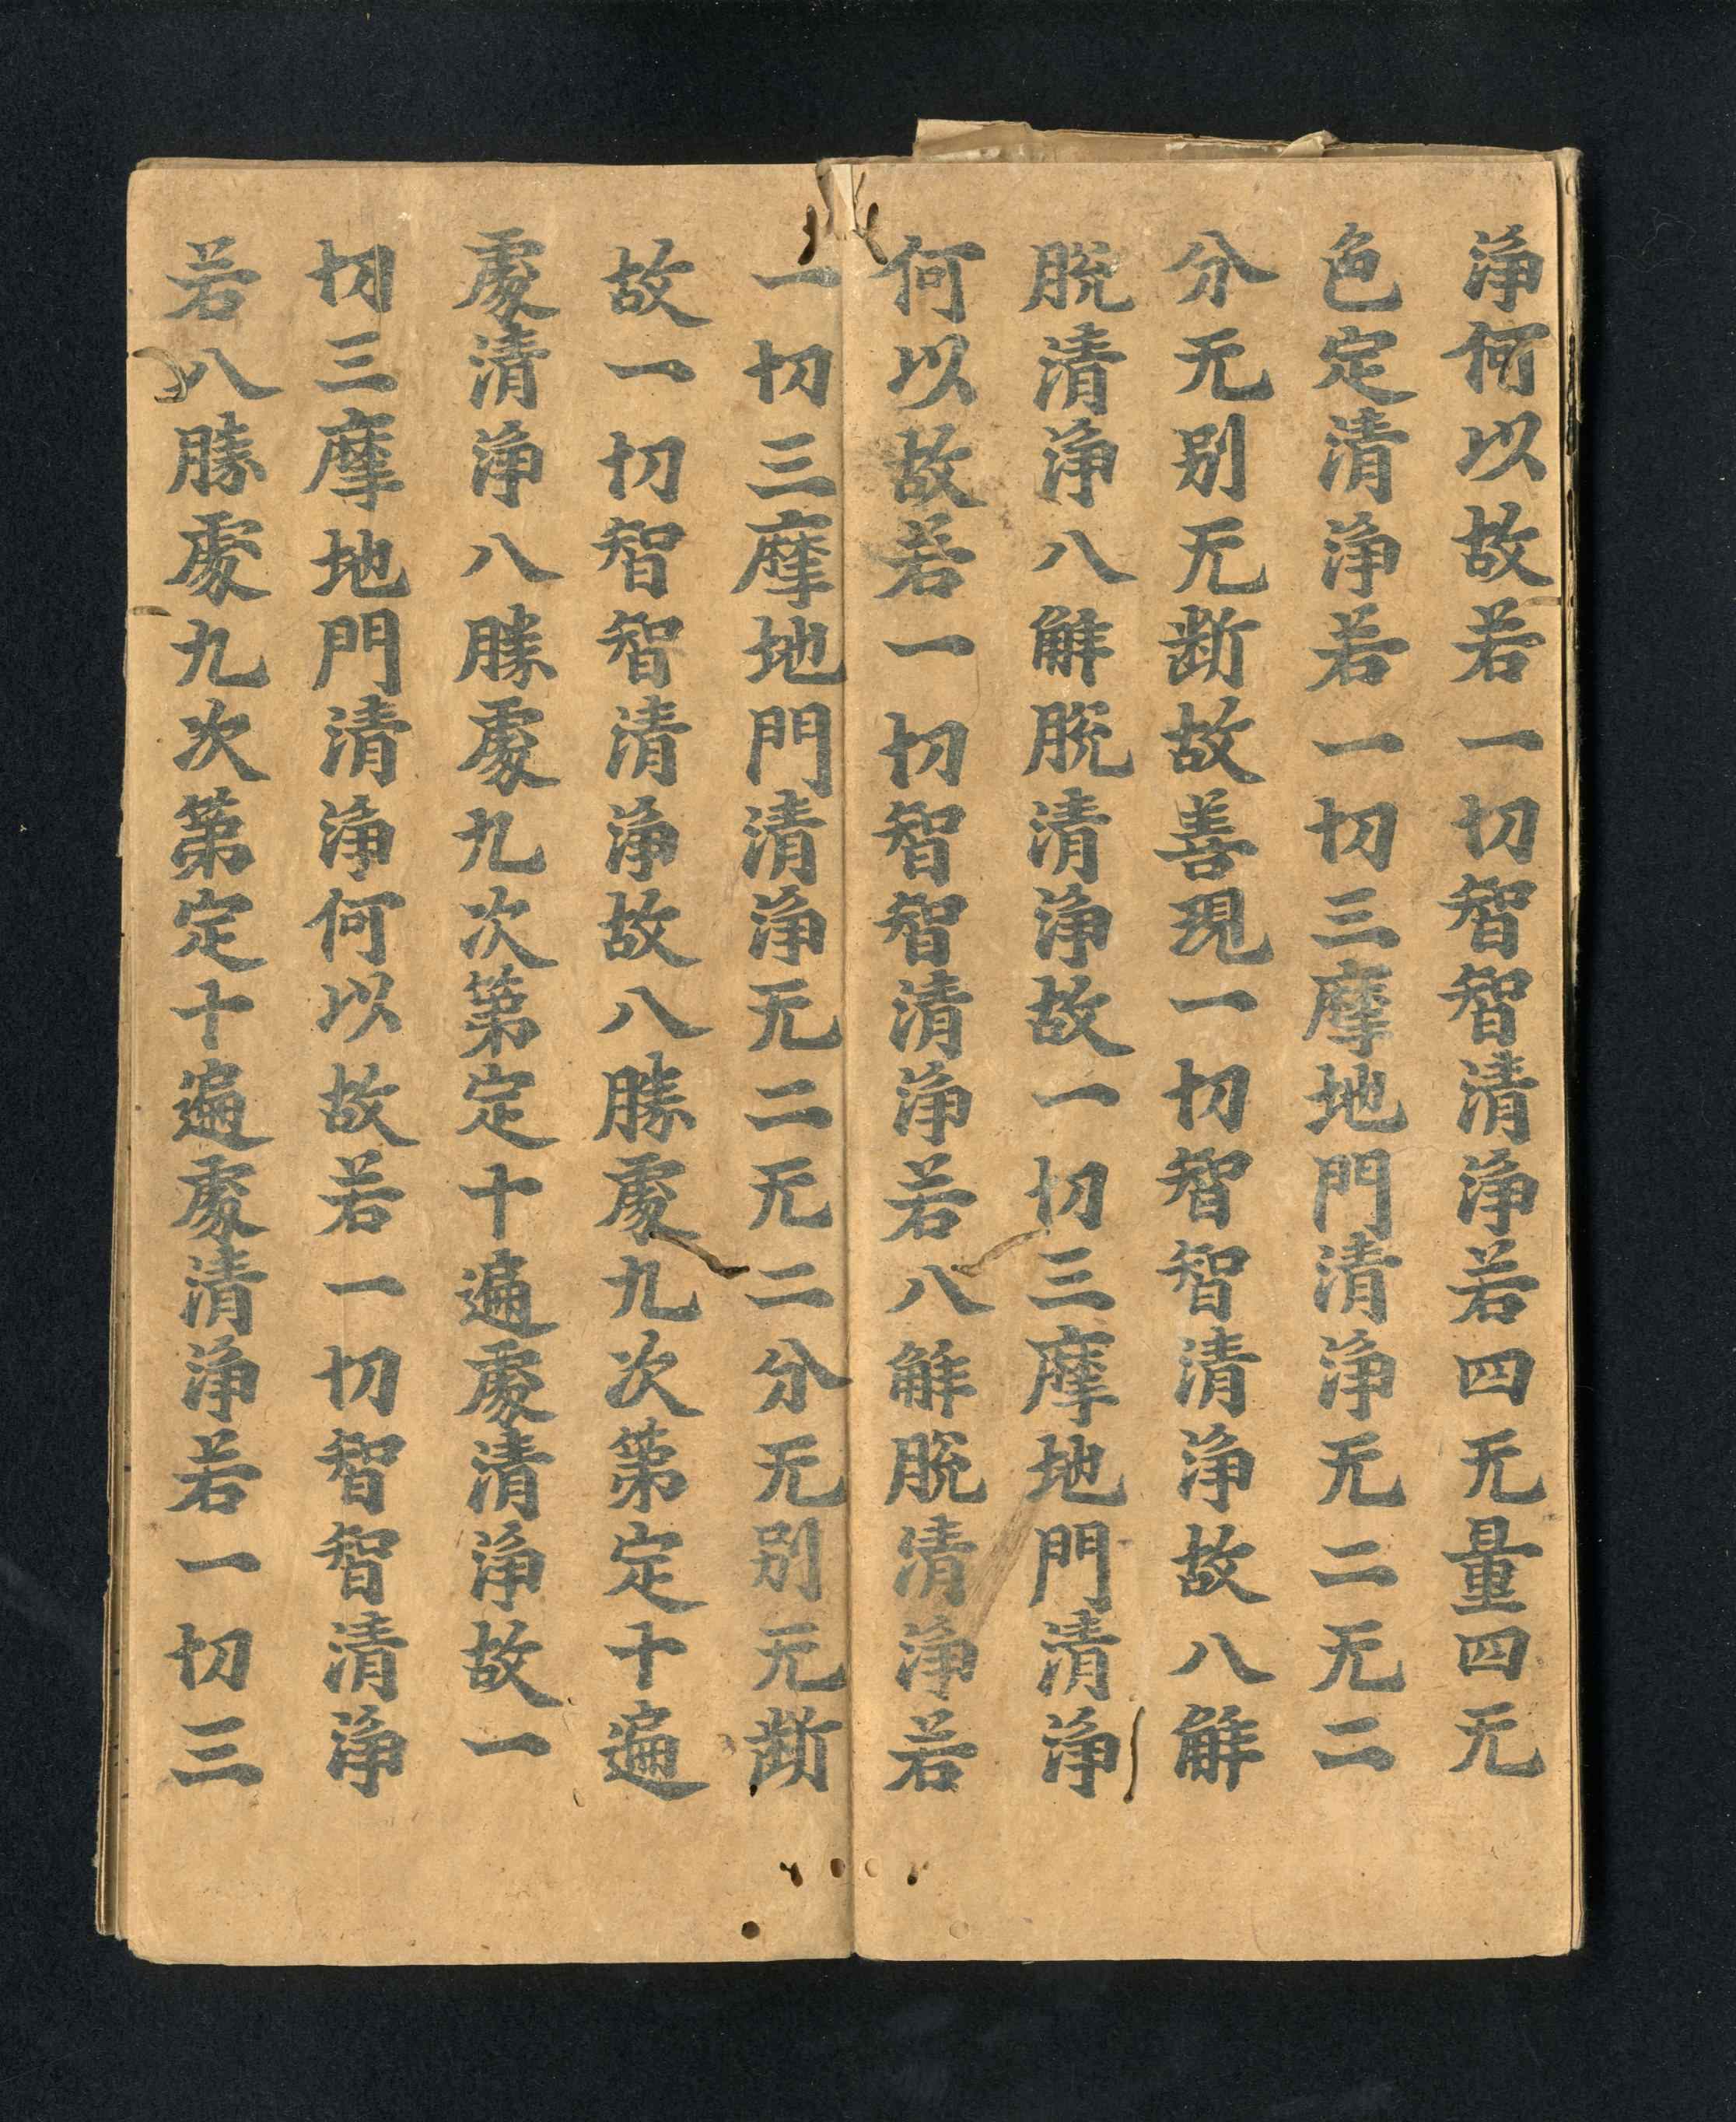 淨何以故若一切智智清淨若四无量四无
色定清淨若一切三摩地門清淨无二无二
分无別无斷故善現一切智智清淨故八解
脫清淨八解脫清淨故一切三摩地門清淨
何以故若一切智智清淨若八解脫清淨若
一切三摩地門清淨无二无二分无別无斷
故一切智智清淨故八勝處九次第定十遍
處清淨八勝處九次第定十遍處清淨故一
切三摩地門清淨何以故若一切智智清淨
若八勝處九次第定十遍處清淨若一切三